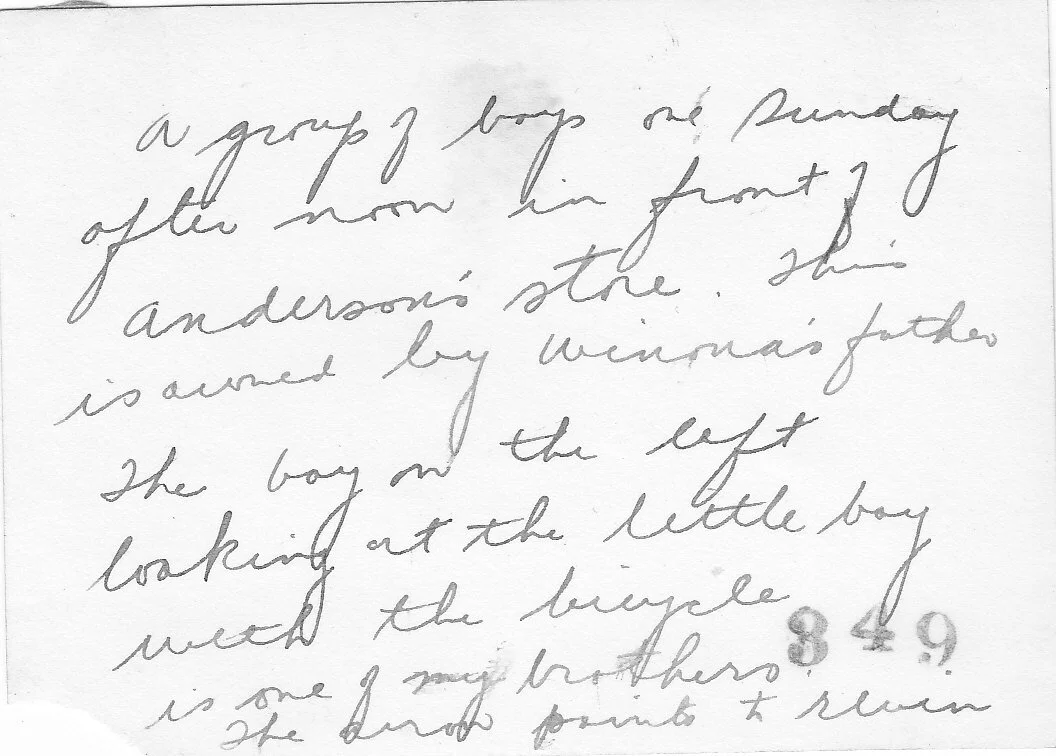 A group of boys one Sunday
after noon in front of
Anderson's store. This
is owned by Winona's father
The boy on the left
looking at the little boy
with the bicycle
349
is one of my brothers.
The arrow points to